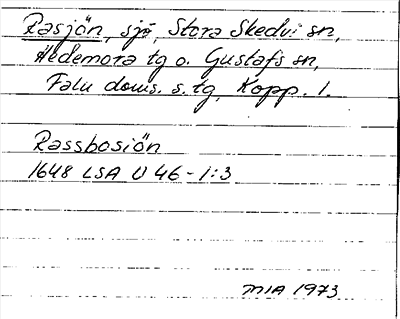 Rasjön, sjö, Stora Skedvi sn,
Hedemora tg o. Gustafs sn,
Falu doms. s. tg, Kopp. l.
Rassbosiön
1648 LSA U 46 - 1:3
MIA 1973